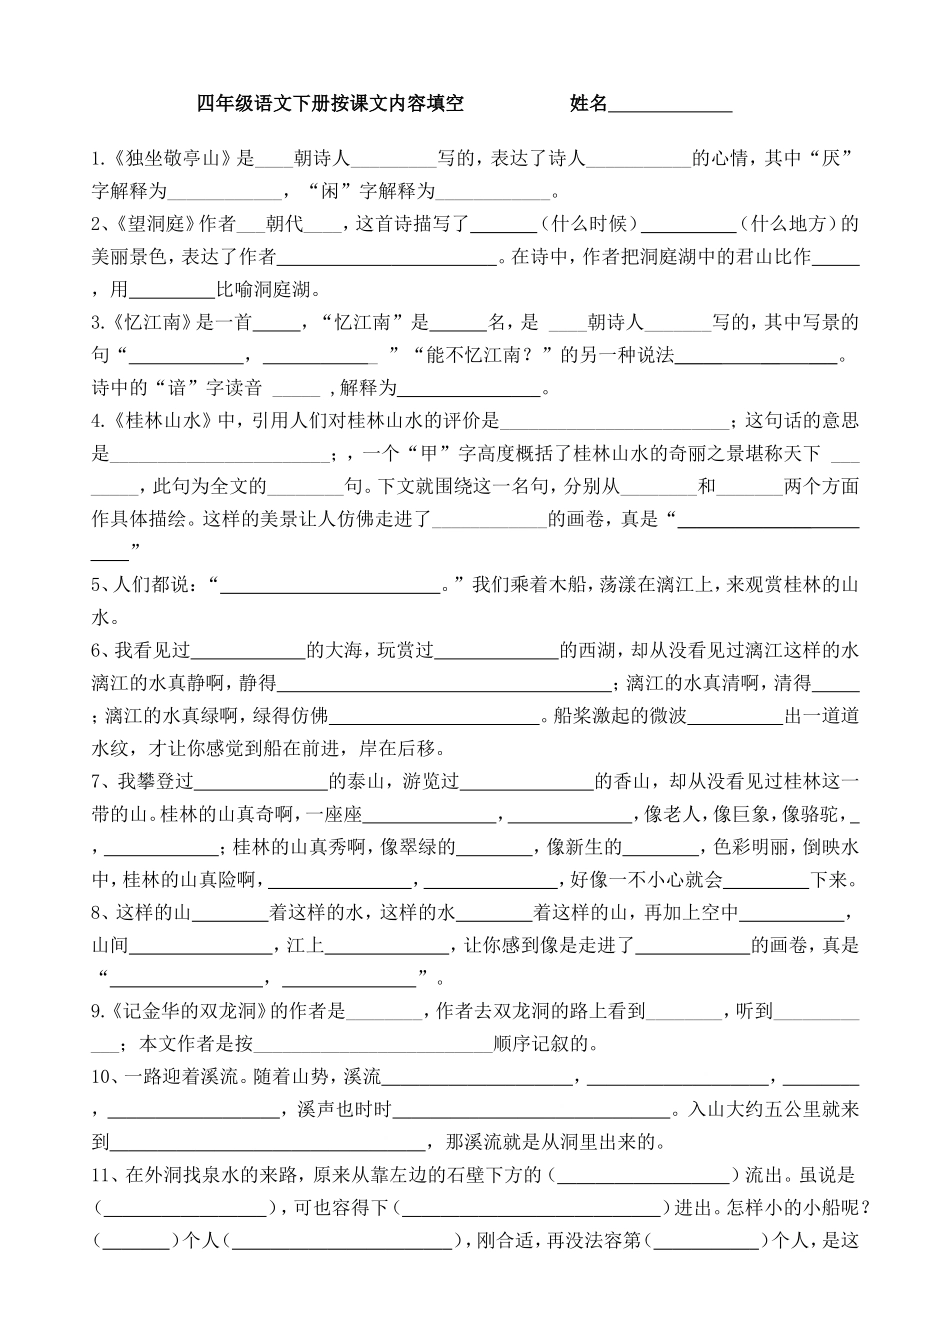 四年级语文下册按课文内容填空 姓名_____________
1.《独坐敬亭山》是____朝诗人_________写的,表达了诗人___________的心情,其中“厌”
字解释为____________，“闲”字解释为____________。
2、《望洞庭》作者___朝代____,这首诗描写了_______（什么时候）__________（什么地方）的
美丽景色,表达了作者_______________________。在诗中,作者把洞庭湖中的君山比作_____
，用_________比喻洞庭湖。
3.《忆江南》是一首_____，“忆江南”是______名,是 ____朝诗人_______写的,其中写景的
句“____________，____________ ”“能不忆江南？”的另一种说法_________________。
诗中的“谙”字读音 _____ ,解释为_______________。
4.《桂林山水》中,引用人们对桂林山水的评价是________________________;这句话的意思
是_______________________;,一个“甲”字高度概括了桂林山水的奇丽之景堪称天下 ___
_____,此句为全文的________句。下文就围绕这一名句,分别从________和_______两个方面
作具体描绘。这样的美景让人仿佛走进了____________的画卷,真是“________________
____”
5、人们都说:“_______________________。”我们乘着木船,荡漾在漓江上,来观赏桂林的山
水。
6、我看见过____________的大海,玩赏过_____________的西湖,却从没看见过漓江这样的水
漓江的水真静啊,静得___________________________________;漓江的水真清啊,清得_____
;漓江的水真绿啊,绿得仿佛______________________。船桨激起的微波__________出一道道
水纹，才让你感觉到船在前进，岸在后移。
7、我攀登过______________的泰山，游览过______________的香山，却从没看见过桂林这一
带的山。桂林的山真奇啊,一座座______________,_____________,像老人,像巨象,像骆驼,_
,____________;桂林的山真秀啊,像翠绿的________,像新生的________,色彩明丽,倒映水
中,桂林的山真险啊,_______________,______________,好像一不小心就会_________下来。
8、这样的山________着这样的水,这样的水________着这样的山,再加上空中___________，
山间_______________,江上_____________,让你感到像是走进了____________的画卷,真是
“________________,______________”。
9.《记金华的双龙洞》的作者是________,作者去双龙洞的路上看到________,听到_________
___；本文作者是按_________________________顺序记叙的。
10、一路迎着溪流。随着山势,溪流____________________,___________________,________
,__________________,溪声也时时_____________________________。入山大约五公里就来
到_________________________________，那溪流就是从洞里出来的。
11、在外洞找泉水的来路,原来从靠左边的石壁下方的(__________________)流出。虽说是
(_________________),可也容得下(___________________________)进出。怎样小的小船呢？
(_______)个人(_______________________),刚合适,再没法容第(___________)个人,是这